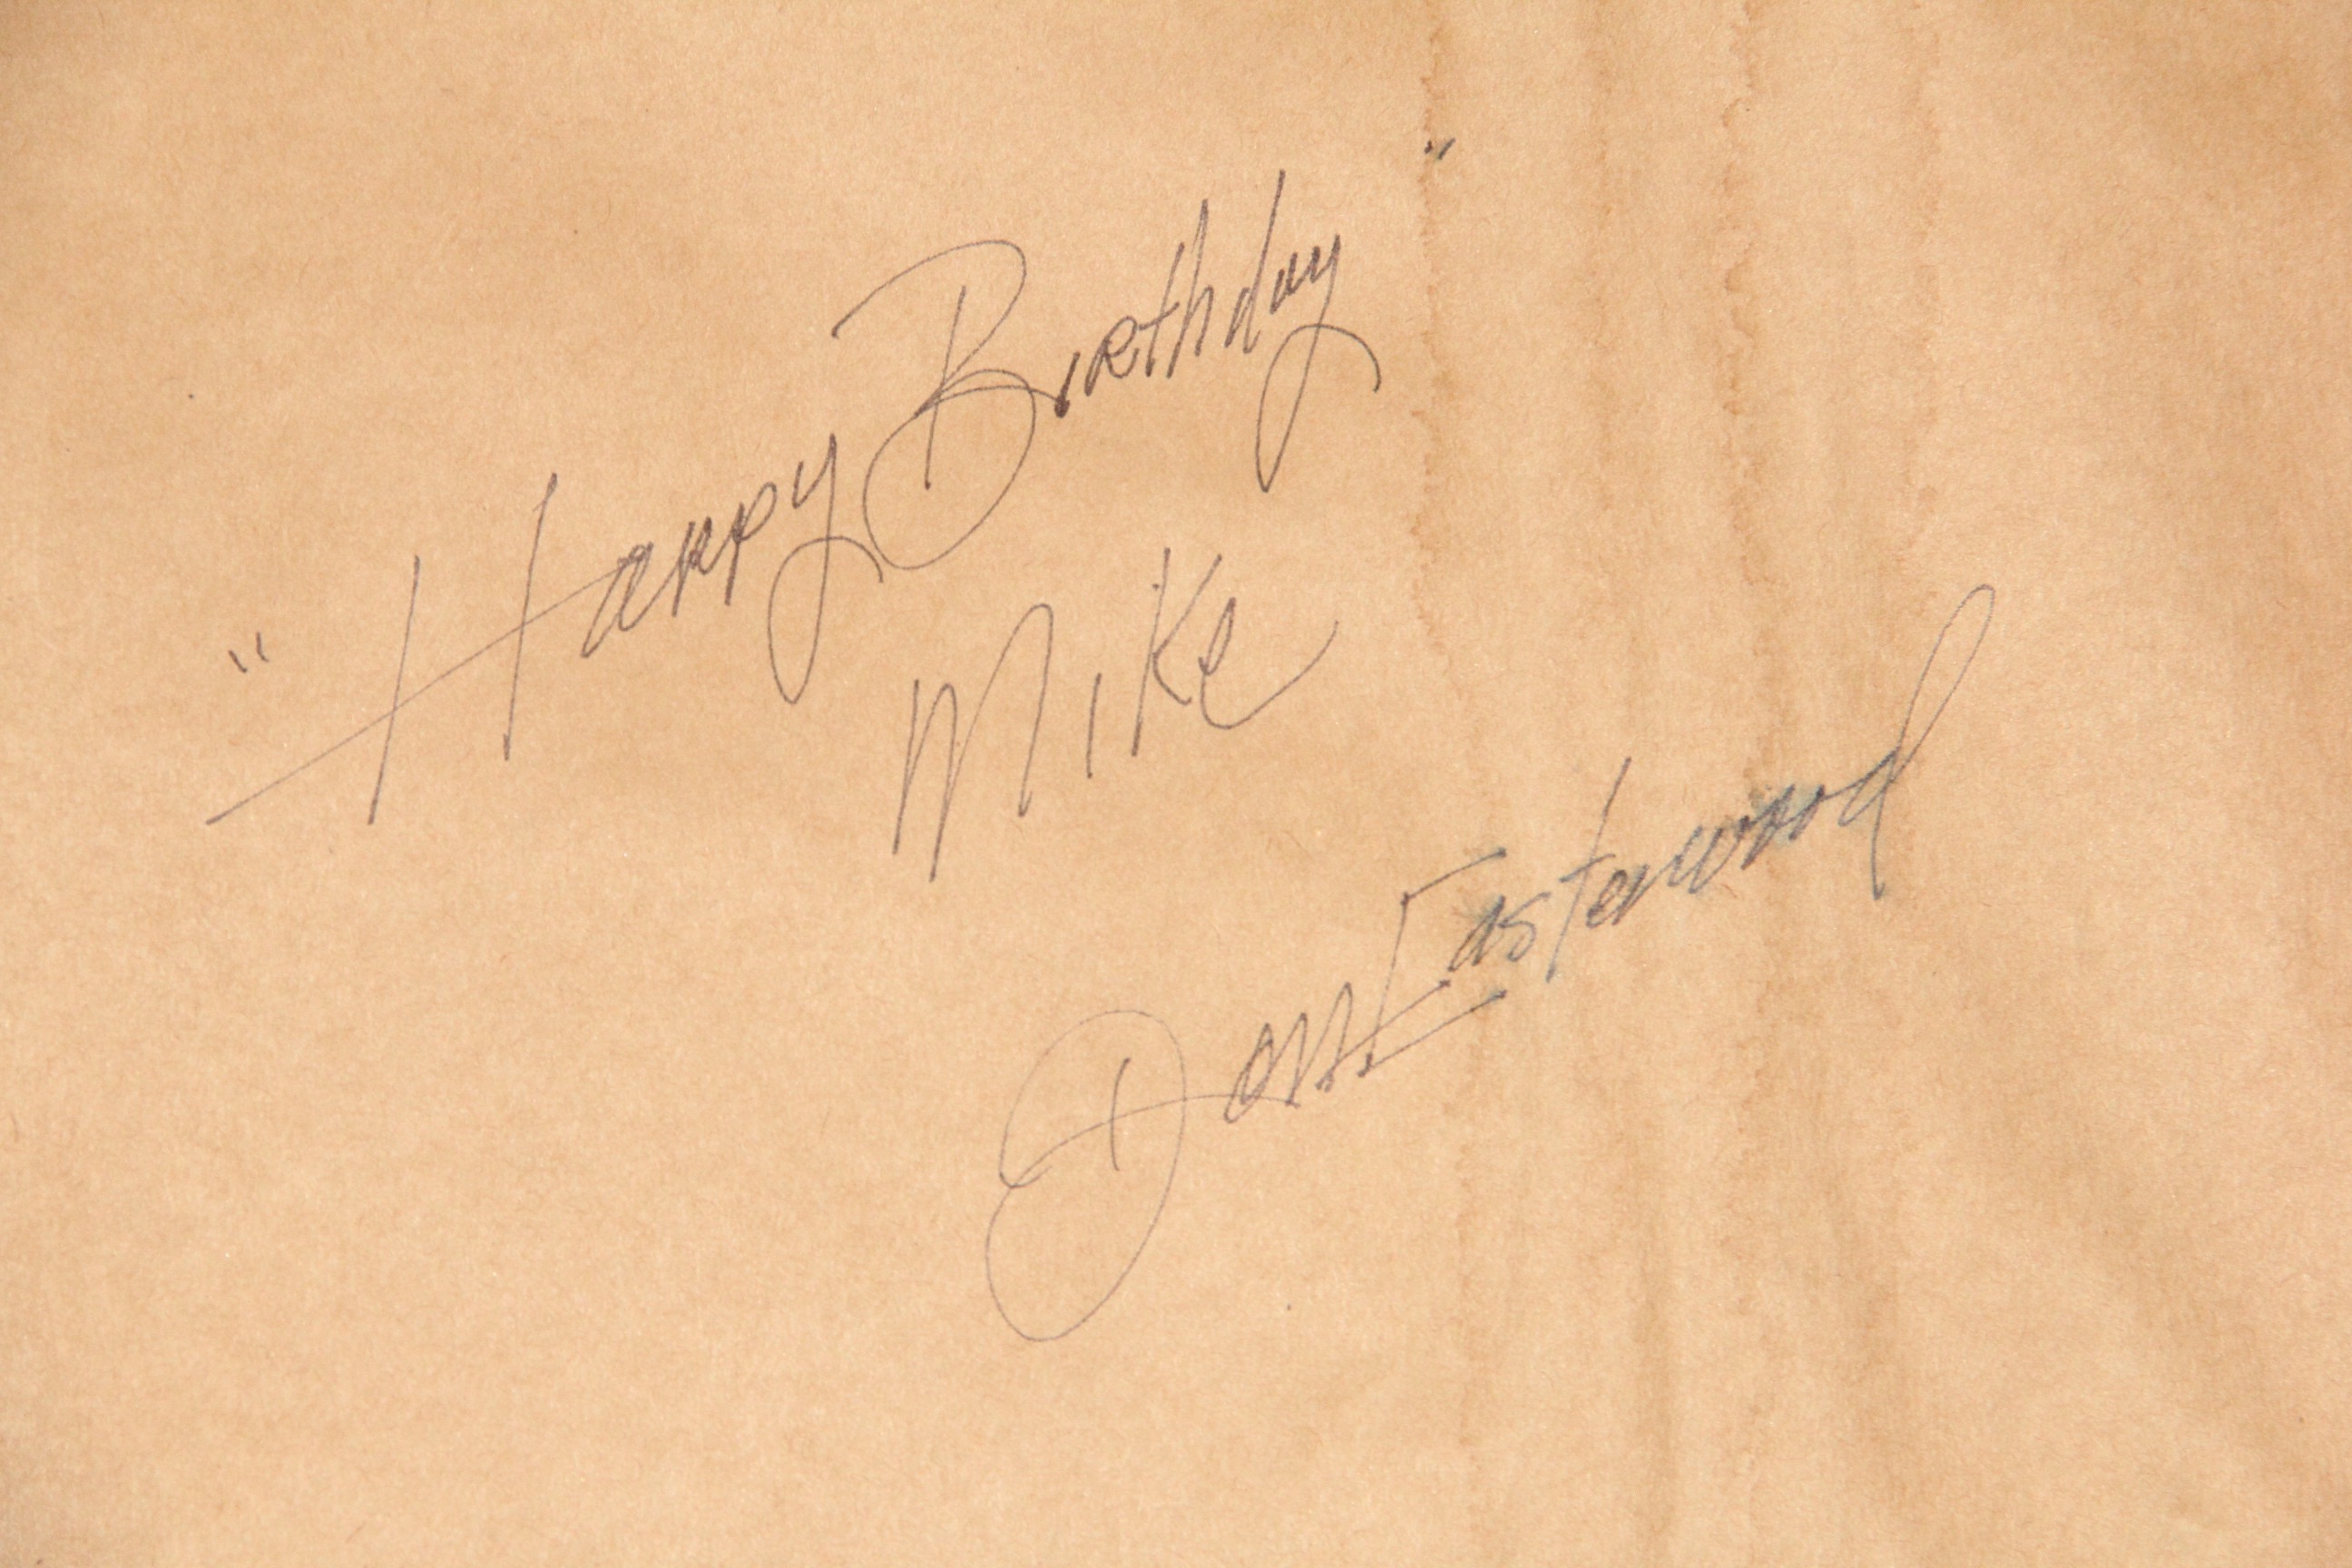 "Happy Birthday"
Mike
Don Easterwood